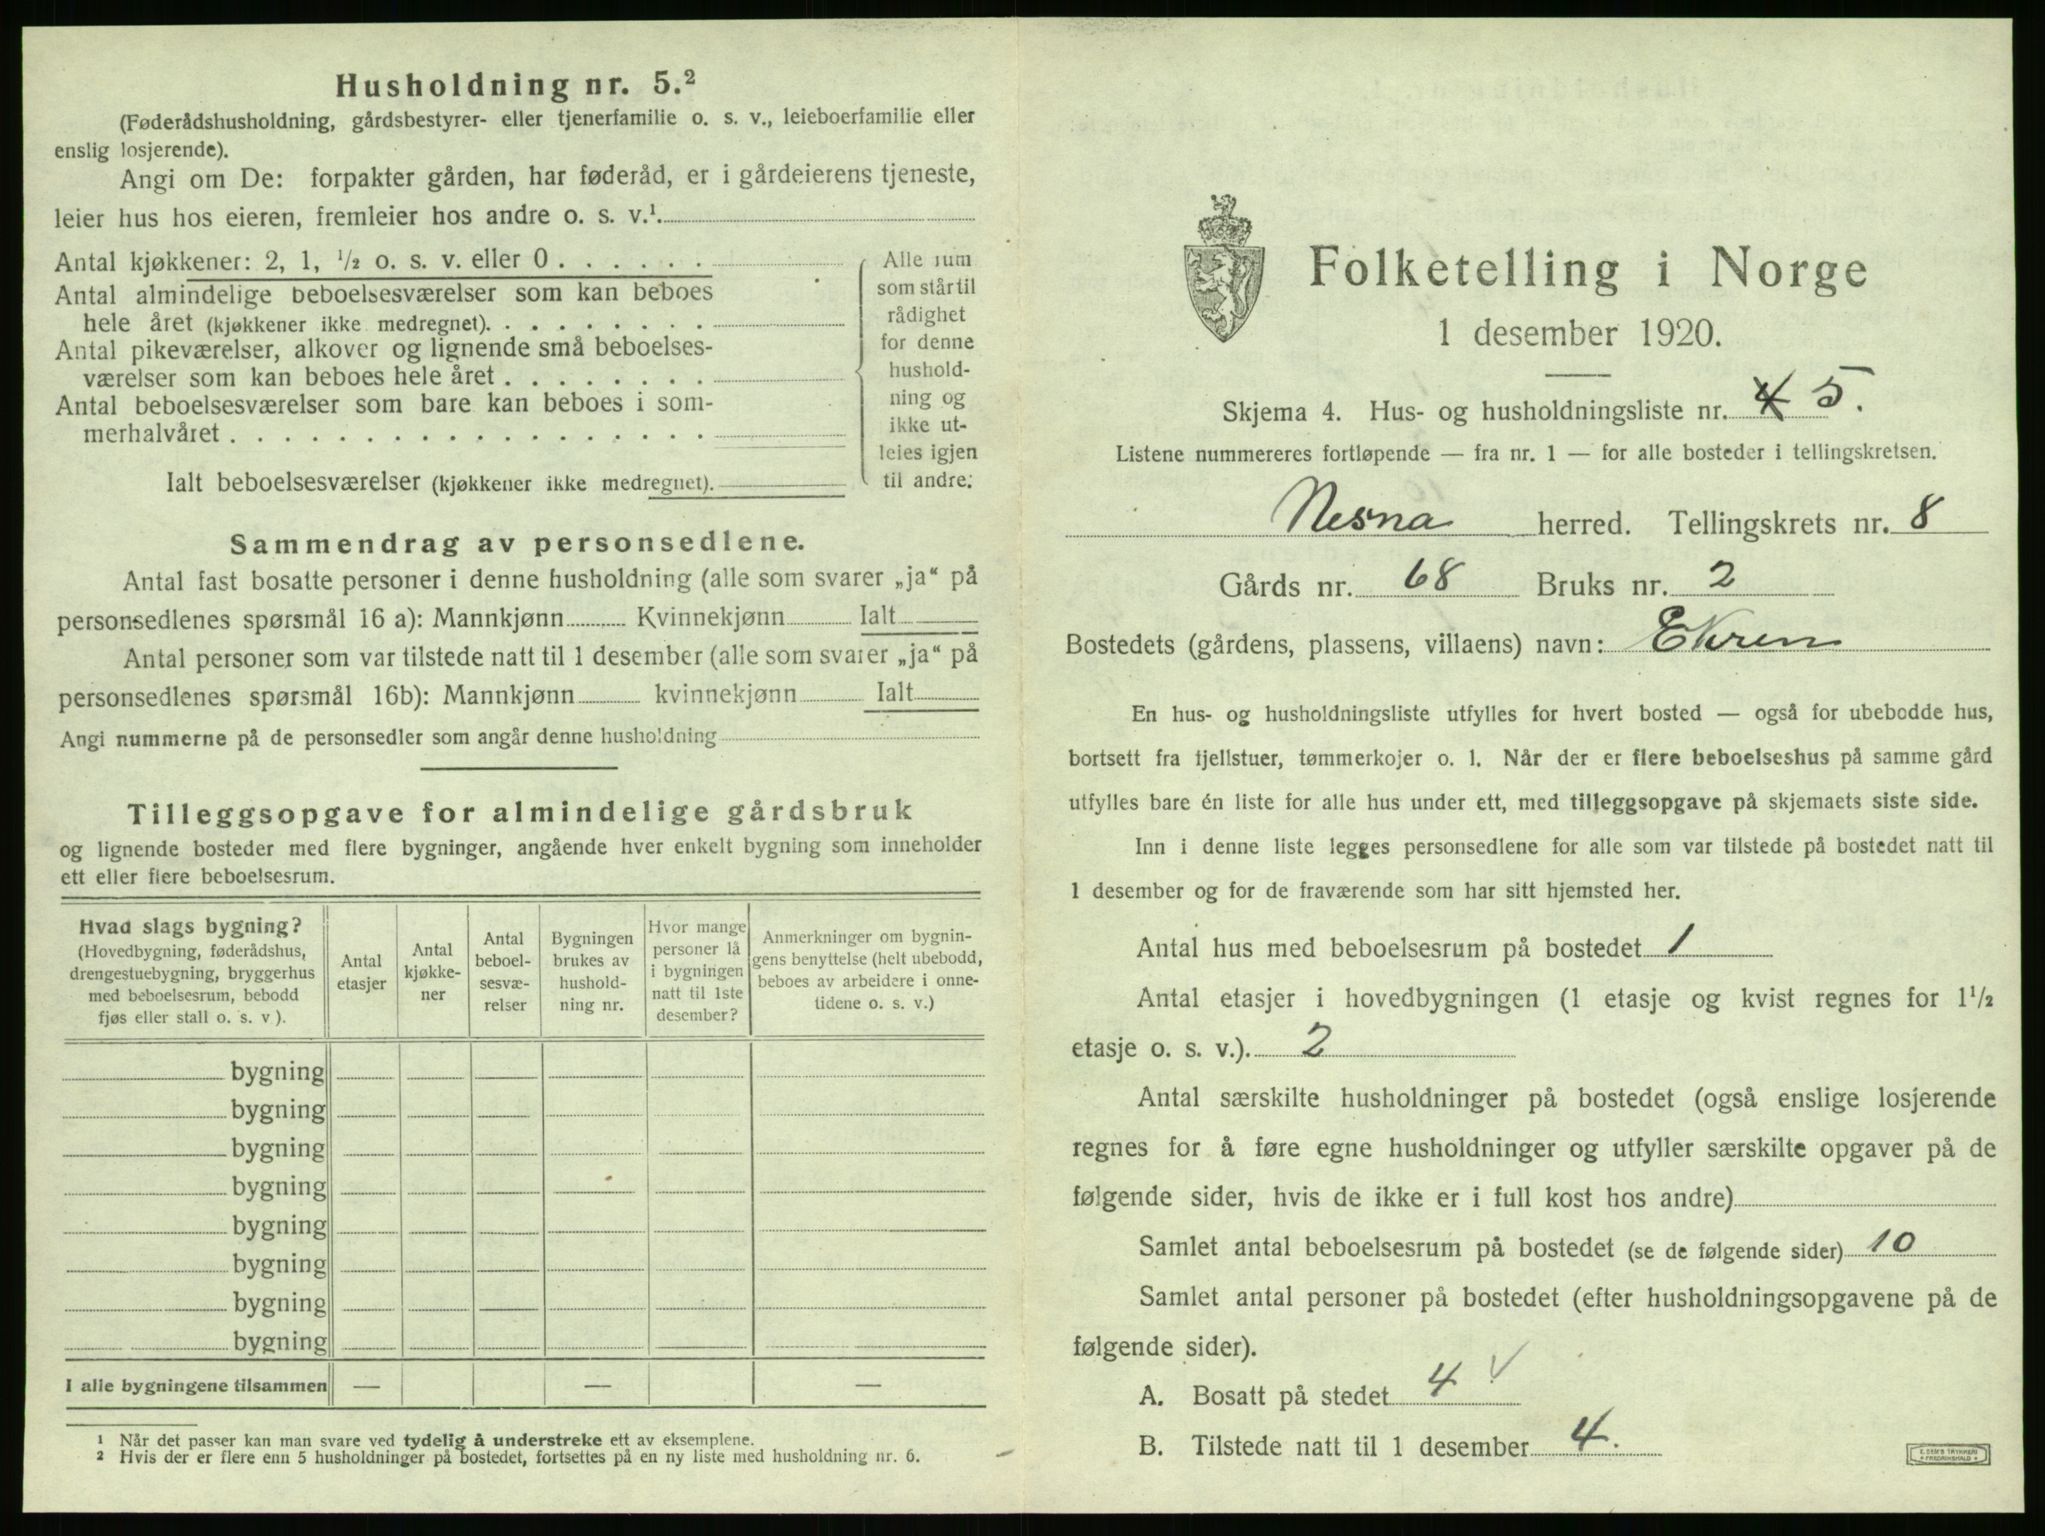 Husholdning nr. 5.²
(Føderådshusholdning, gårdsbestyrer- eller tjenerfamilie o. s. v., leieboerfamilie eller
enslig losjerende).
Angi om De: forpakter gården, har føderåd, er i gårdeierens tjeneste,
leier hus hos eieren, fremleier hos andre o. s. v.¹
Antal kjøkkener: 2, 1, ½ o. s. v. eller 0 . . . . . .
Antal almindelige beboelsesværelser som kan beboes
hele året (kjøkkener ikke medregnet). . . . . . . . .
Antal pikeværelser, alkover og lignende små beboelses-
værelser som kan beboes hele året . . . . . . . .
Antal beboelsesværelser som bare kan beboes i som-
merhalvåret . . . . . . . . . . . . . . . . . .
Ialt beboelsesværelser (kjøkkener ikke medregnet).
Alle rum
som står til
rådighet
for denne
hushold-
ning og
ikke ut-
leies igjen
til andre.
Sammendrag av personsedlene.
Antal fast bosatte personer i denne husholdning (alle som svarer „ja“ på
personsedlenes spørsmål 16 a): Mannkjønn Kvinnekjønn Ialt
Antal personer som var tilstede natt til 1 desember (alle som svarer „ja“ på
personsedlenes spørsmål 16b): Mannkjønn kvinnekjønn Ialt
Angi nummerne på de personsedler som angår denne husholdning
Tilleggsopgave for almindelige gårdsbruk
og lignende bosteder med flere bygninger, angående hver enkelt bygning som inneholder
ett eller flere beboelsesrum.
Hvad slags bygning?
(Hovedbygning, føderådshus,
drengestuebygning, bryggerhus
med beboelsesrum, bebodd
fjøs eller stall o. s. v ).
Antal
etasjer
Antal
kjøkke-
ner
Antal
beboel-
sesvæ-
relser
Bygningen
brukes av
hushold-
ning nr.
Hvor mange
personer lå
i bygningen
natt til 1ste
desember?
Anmerkninger om bygnin-
gens benyttelse (helt ubebodd,
beboes av arbeidere i onne-
tidene o. s. v.)
bygning
bygning
bygning
bygning
bygning
bygning
bygning
bygning
I alle bygningene tilsammen — — —
¹ Når det passer kan man svare ved tydelig å understreke ett av eksemplene.
² Hvis der er flere enn 5 husholdninger på bostedet, fortsettes på en ny liste med husholdning nr. 6.
Folketelling i Norge
1 desember 1920.
Skjema 4. Hus- og husholdningsliste nr. 4 5.
Listene nummereres fortløpende — fra nr. 1 — for alle bosteder i tellingskretsen.
Nesna herred. Tellingskrets nr. 8
Gårds nr. 68 Bruks nr. 2
Bostedets (gårdens, plassens, villaens) navn: Ekren
En hus- og husholdningsliste utfylles for hvert bosted — også for ubebodde hus,
bortsett fra fjellstuer, tømmerkojer o. l. Når der er flere beboelseshus på samme gård
utfylles bare én liste for alle hus under ett, med tilleggsopgave på skjemaets siste side.
Inn i denne liste legges personsedlene for alle som var tilstede på bostedet natt til
1 desember og for de fraværende som har sitt hjemsted her.
Antal hus med beboelsesrum på bostedet 1
Antal etasjer i hovedbygningen (1 etasje og kvist regnes for 1½
etasje o. s. v.). 2
Antal særskilte husholdninger på bostedet (også enslige losjerende
regnes for å føre egne husholdninger og utfyller særskilte opgaver på de
følgende sider, hvis de ikke er i full kost hos andre)
Samlet antal beboelsesrum på bostedet (se de følgende sider) 10
Samlet antal personer på bostedet (efter husholdningsopgavene på de
følgende sider).
A. Bosatt på stedet 4 √
B. Tilstede natt til 1 desember 4.